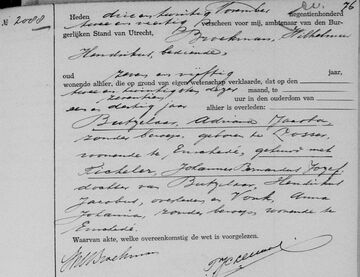 76
№ 2088
Heden drie en twintig November negentienhonderd
twee en veertig verscheen voor mij, ambtenaar van den Bur-
gerlijken Stand van Utrecht, Broekman, Wilhelmus
Hendrikus, bediende,
oud zeven en vijftig jaren
wonende alhier, die op grond van eigen wetenschap verklaarde, dat op den
twee en twintigsten dezer maand, te
zeventien uur in den ouderdom van
een en dertig jaar alhier is overleden:
Butzelaar, Adriana Jacoba
zonder beroep, geboren te Losser
wonende te Enschede, gehuwd met
Richeler, Johannes Bernardus Jozef
dochter van Butzelaar, Hendrikus
Jacobus, overleden en Vonk, Anna
Jolamia, zonder beroep wonende te
Enschede.
Waarvan akte, welke overeenkomstig de wet is voorgelezen.
WH Broekman